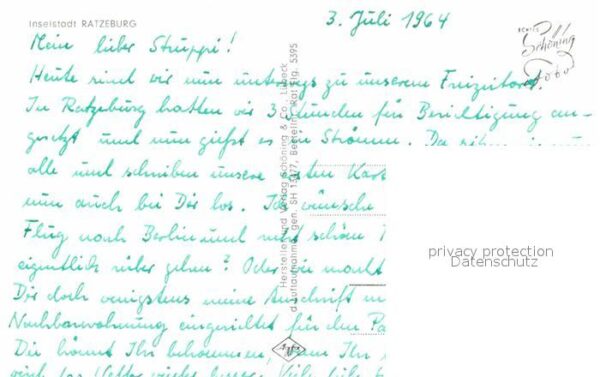 Inselstadt RATZEBURG
3. Juli 1964
ECHTES
Schöning
Foto
Mein lieber Struppi!
Heute sind wir nun unterwegs zu unserem Freizeitort.
In Ratzeburg hatten wir 3 Stunden für Besichtigung an-
gesetzt und nun gießt es in Strömen. Da sitzen
alle und schreiben unsere Kart
nun auch bei Dir los. Ich wünsche
Flug nach Berlin und recht schöne
eigentlich rüber gehen? Oder
Dir doch wenigstens meine Anschrift
Nachbarwohnung eingerichtet für den
Die könnt Ihr bekommen, wenn Ihr
wird das Wetter wieder Viele
Hersteller und Verlag Schöning & Co., Lübeck
Luftaufnahme gen. SH 13/77, Bestell-Nr. Rat Ltg. 5395
Agfa
privacy protection
Datenschutz